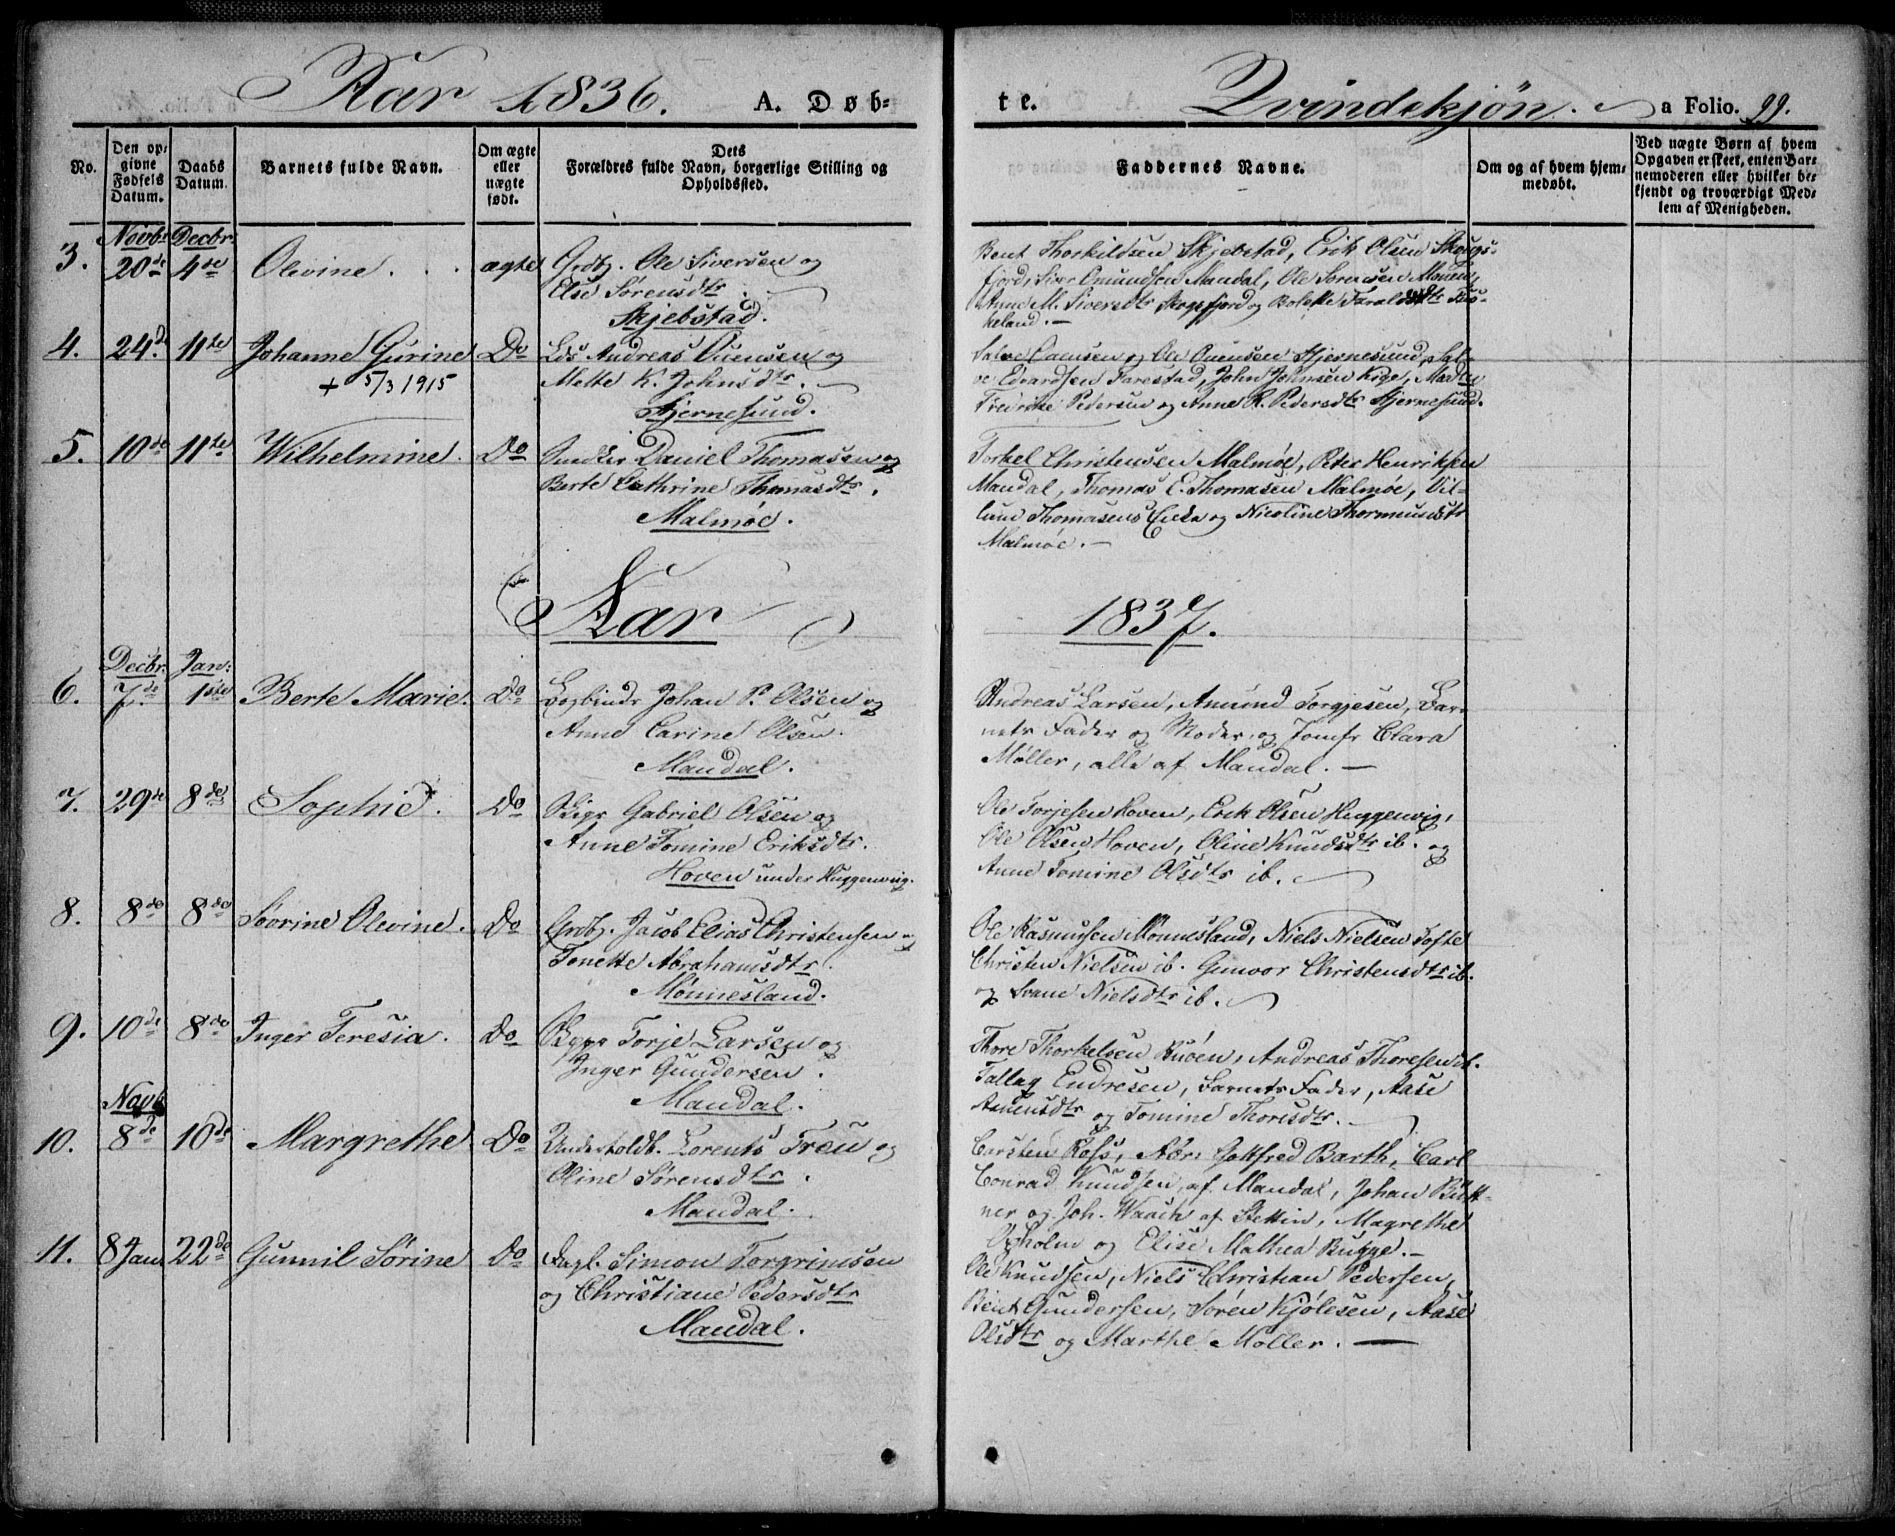 Aar 1836. A. Døb=
te. Qvindekjön. a Folio. 99.
No.
Den op=
givne
Fødsels
Datum.
Daabs
Datum.
Barnets fulde Navn.
Om ægte
eller
uægte
født.
Dets
Forældres fulde Navn, borgerlige Stilling og
Opholdssted.
Faddernes Navne.
Om og af hvem hjem=
medøbt.
Ved uægte Børn af hvem
Opgaven er skeet, enten Bar=
nemoderen eller hvilket be=
kjendt og troværdigt Med=
lem af Menigheden.
Novbr Decbr
3. 20de 4de Olevine . . . ægte Grdbg. Ole Siversen og
Else Sörensdtr.
Skjebstad.
Bent Thorkildsen Skjebstad, Erik Olsen Skougs-
fjord, Siver Omundsen Mandal, Ole Sörensen Monen,
Anne M. Siversdtr Skogsfjord og Bolette Taraldsdtr Bus-
keland. —
4. 24d 11te Johanne Gurine Do Lds Andreas Ouensen og
+ 5/3 1915
Mette K. Johnsdtr.
Hjernesund.
Salve Ouensen og Ole Ouensen Hjernesund, Sal-
ve Edvardsen Farestad, John Johnsen Kige, Marthe
Fredrikke Pedersen og Anne R. Pedersdtr Hjernesund.
5. 10de 11te Wilhelmine. Do Daniel Thomasen og
Berte Cathrine Thomasdtr.
Malmöe.
Torkel Christensen Malmöe, Peter Henriksen
Mandal, Thomas E. Thomasen Malmöe, Vil-
Thomasens og Nicoline Thormundsdtr
Malmöe. —
Aar 1837.
Decbr. Jan:
6. 7de 1ste Berte Marie. Do Bogbindr Johan P. Olsen og
Anne Carine Olsen.
Mandal.
Andreas Larsen, Amund Torgjesen, Bar-
nets Fader og Moder, og Jomfr Clara
Möller, alle af Mandal. —
7. 29de 8de Sophie. Do Skipr Gabriel Olsen og
Anne Tomine Eriksdtr.
Hoven under Huggenvig.
Ole Torjesen Hoven, Erik Olsen Huggenvig,
Ole Olsen Hoven, Oline Knudsdtr ib. og
Anne Tomine Olsdtr ib.
8. 8de 8de Sövrine Olevine. Do Grdbg. Jacob Elias Christensen og
Tonette Abrahamsdtr.
Mönnesland.
Ole Rasmusen Mönnesland, Niels Nielsen Tofte
Christen Nielsen ib. Gunvor Christensdtr ib.
og Svane Nielsdtr ib.
9. 10de 8de Inger Teresia. Do Torje Larsen og
Inger Gundersen.
Mandal.
Thore Thorkelsen Buöen, Andreas Thoresen ib.
Tallag Endresen, Barnets Fader, Aase
Aanensdtr og Tomine Thorisdtr.
Novb
10. 8de 10de Margrethe Do Underholdb. Lorents Træn og
Oline Sörensdtr.
Mandal.
Carsten Ross, Abr: Gottfred Barth, Carl
Conrad Knudsen, af Mandal, Johan Bütt-
ner og Joh. Waach af Stettin, Magrethe
Opholm og Elise Mathea Bugge. —
11. 8d Jan 22de Gunnil Sörine Do Dagl. Simon Torgrimsen
og Christiane Pedersdtr
Mandal.
Ole Knudsen, Niels Christian Pedersen,
Bent Gundersen, Sören Kjölesen, Aase
Olsdtr og Marthe Möller. —